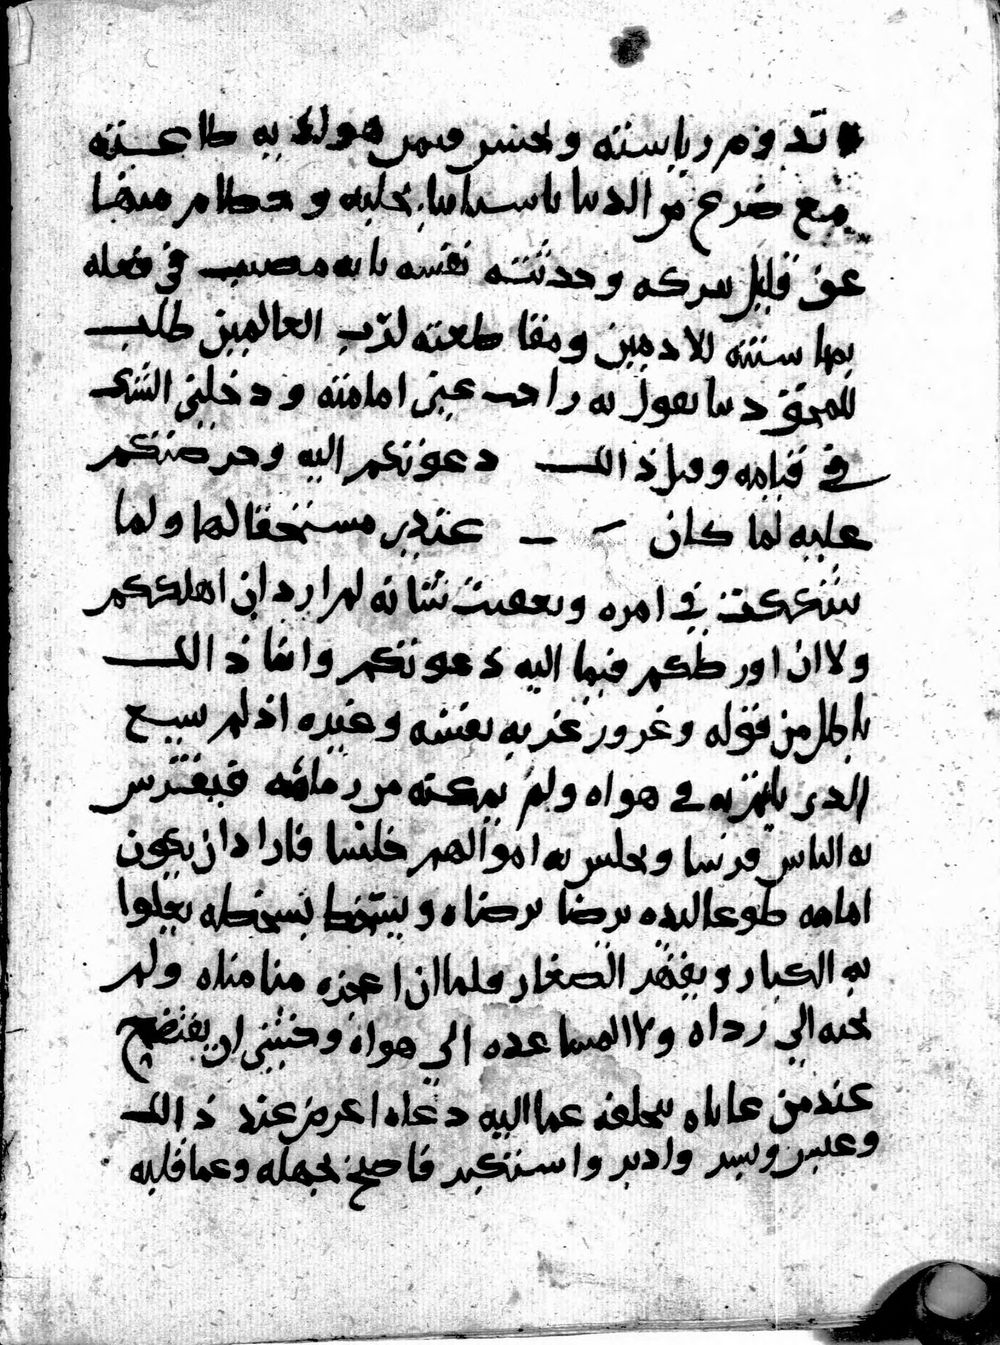 تدوم رياسته وتحسن فيمن هو له به طاعته
مع ضرع من الدنيا ناسيا بخليه وحطام منها
عن قليل سركه وحدثته نفسه بانه مصيب في فعله
بمها سنته للادميين ومقاطعته لرب العالمين طلب
للمحق دنيا بقول به راحت عني امامته ودخلني الشك
في قيامه وقبل ذالك دعوتكم اليه وحرضتكم
عليه لما كان عندي مستحقا لها ولما
شككت في امره وتعقبت شانه لم ارد ان اهلككم
ولا ان اورطكم فيما اليه دعوتكم وانما ذالك
باطل من قوله وغرور غر به نفسه وغيره اذ لم يسع
الذي يامر به في هواه ولم يمكنه من رمائه فيفترس
به الناس فرسا ويخلس به اموالهم خلسا فاراد ان يكون
امامه طوعا ليده يرضا برضاه ويسخط بسخطه يعلوا
به الكبار ويقهر الصغار فلما ان اعجزه منا مناه ولم
نجبه الي رداه ولا المساعده الي هواه وخشي ان يفتضح
عند من عاباه بتخلفه عما اليه دعاه اعرض عند ذالك
وعبس وبسر وادبر واستكبر فاصبح بجهله وعما قلبه